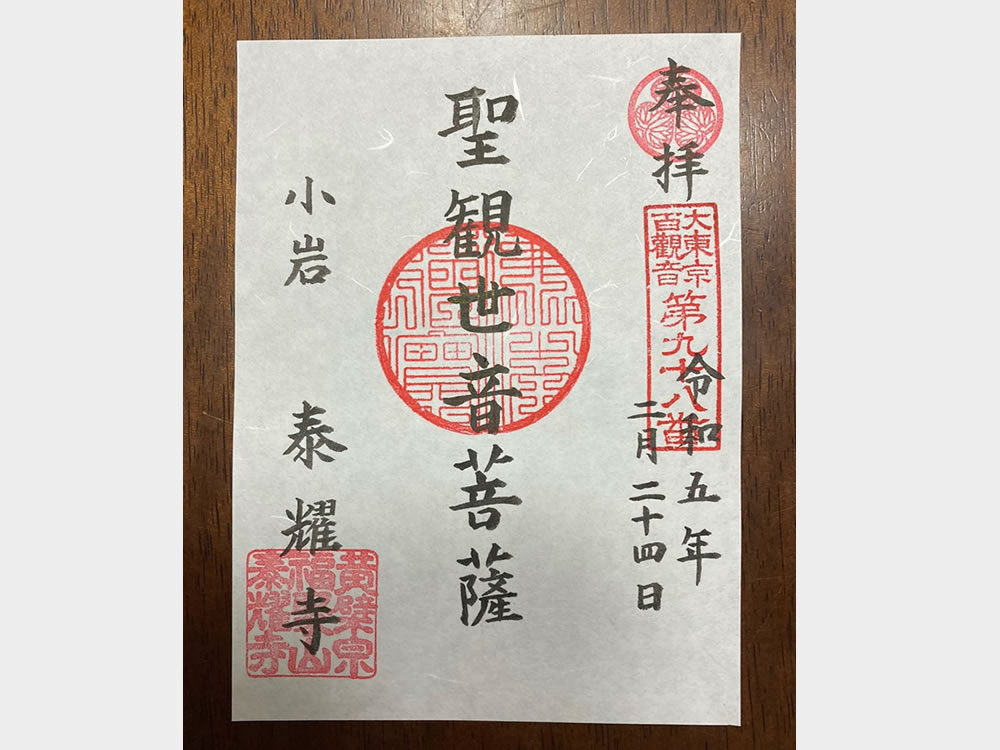 奉拝
大東京
百觀音
第九十八番
令和五年
二月二十四日
聖観世音菩薩
小岩
泰耀寺
黄檗宗
福聚山
泰耀寺